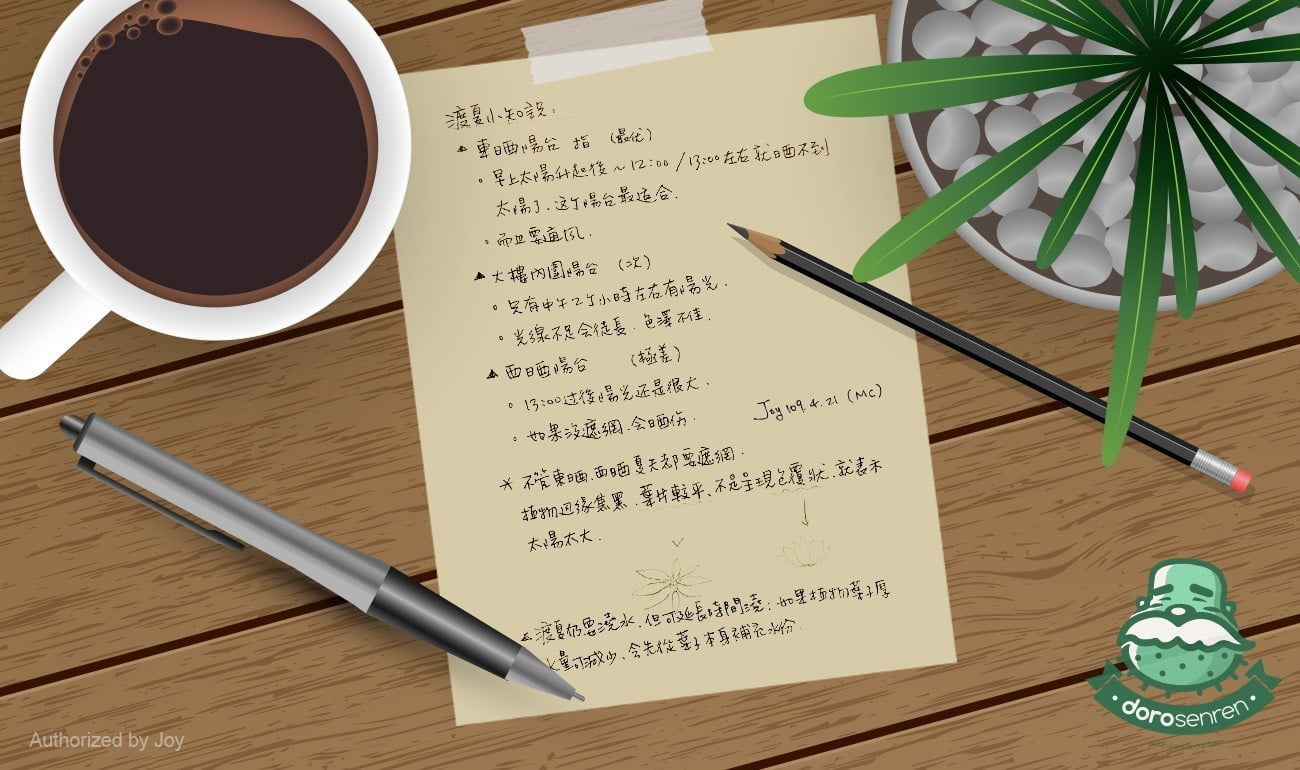 渡夏小知識:
▲ 東晒陽台 指 (最优)
。早上太陽升起後 ~ 12:00 / 13:00 左右就晒不到
太陽了.这个陽台最适合.
。而且要通风.
▲ 大樓內圍陽台 (次)
。只有中午2个小時左右有陽光.
。光線不足会徒長.色澤不佳.
▲ 西晒陽台 (極差)
。13:00过後陽光还是很大.
。如果沒遮網.会晒伤.
Joy 109.4.21 (MC)
* 不管東晒.西晒夏天都要遮網.
植物边缘焦黑.葉片較平、不是呈現包覆狀.就表示
太陽太大.
渡夏仍要澆水.但可延長時間澆;如果植物葉子厚
水量可減少.会先從葉子本身補充水份.
Authorized by Joy
dorosenren